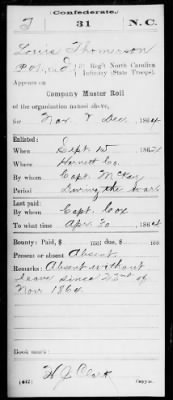 Confederate.
T 31 N.C.
Louis Thomerson
31 Reg't North Carolina
Infantry (State Troops).
Appears on
Company Muster Roll
of the organization named above,
for Nov. & Dec., 1864
Enlisted:
When Sept. 15, 186
Where Harnett Co.
By whom Capt. McKay
Period During the war
Last paid:
By whom Capt. Cox
To what time Apr. 30, 1864
Bounty: Paid, $ 100; due $ 100
Present or absent Absent.
Remarks: Absent without
leave since 23rd of
Nov 1864.
Book mark:
Clark
Copyist.